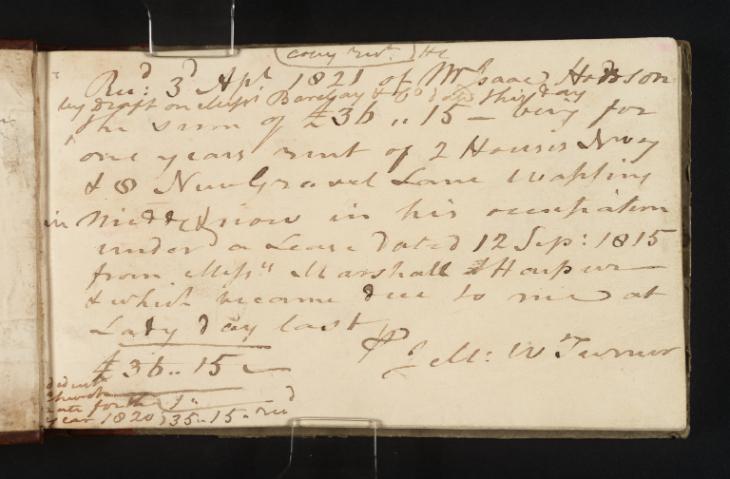 Copy Rect. &c
Recd: 3d Apl 1821 of Mr Isaac Hodgson
by draft on Messrs Barclay & Co dated this day
the sum of £36 .. 15 – being for
one years rent of 2 Houses No 7
& 8 New Gravel Lane Wapping
in Middx now in his occupation
under a Lease Dated 12 Sep: 1815
from Messrs Marshall & Harper
& which became due to me at
Lady day last
£36 .. 15 –
J. M: W Turner
deduct
Church
rate for the
year 1820
£35 .. 15 .. recd